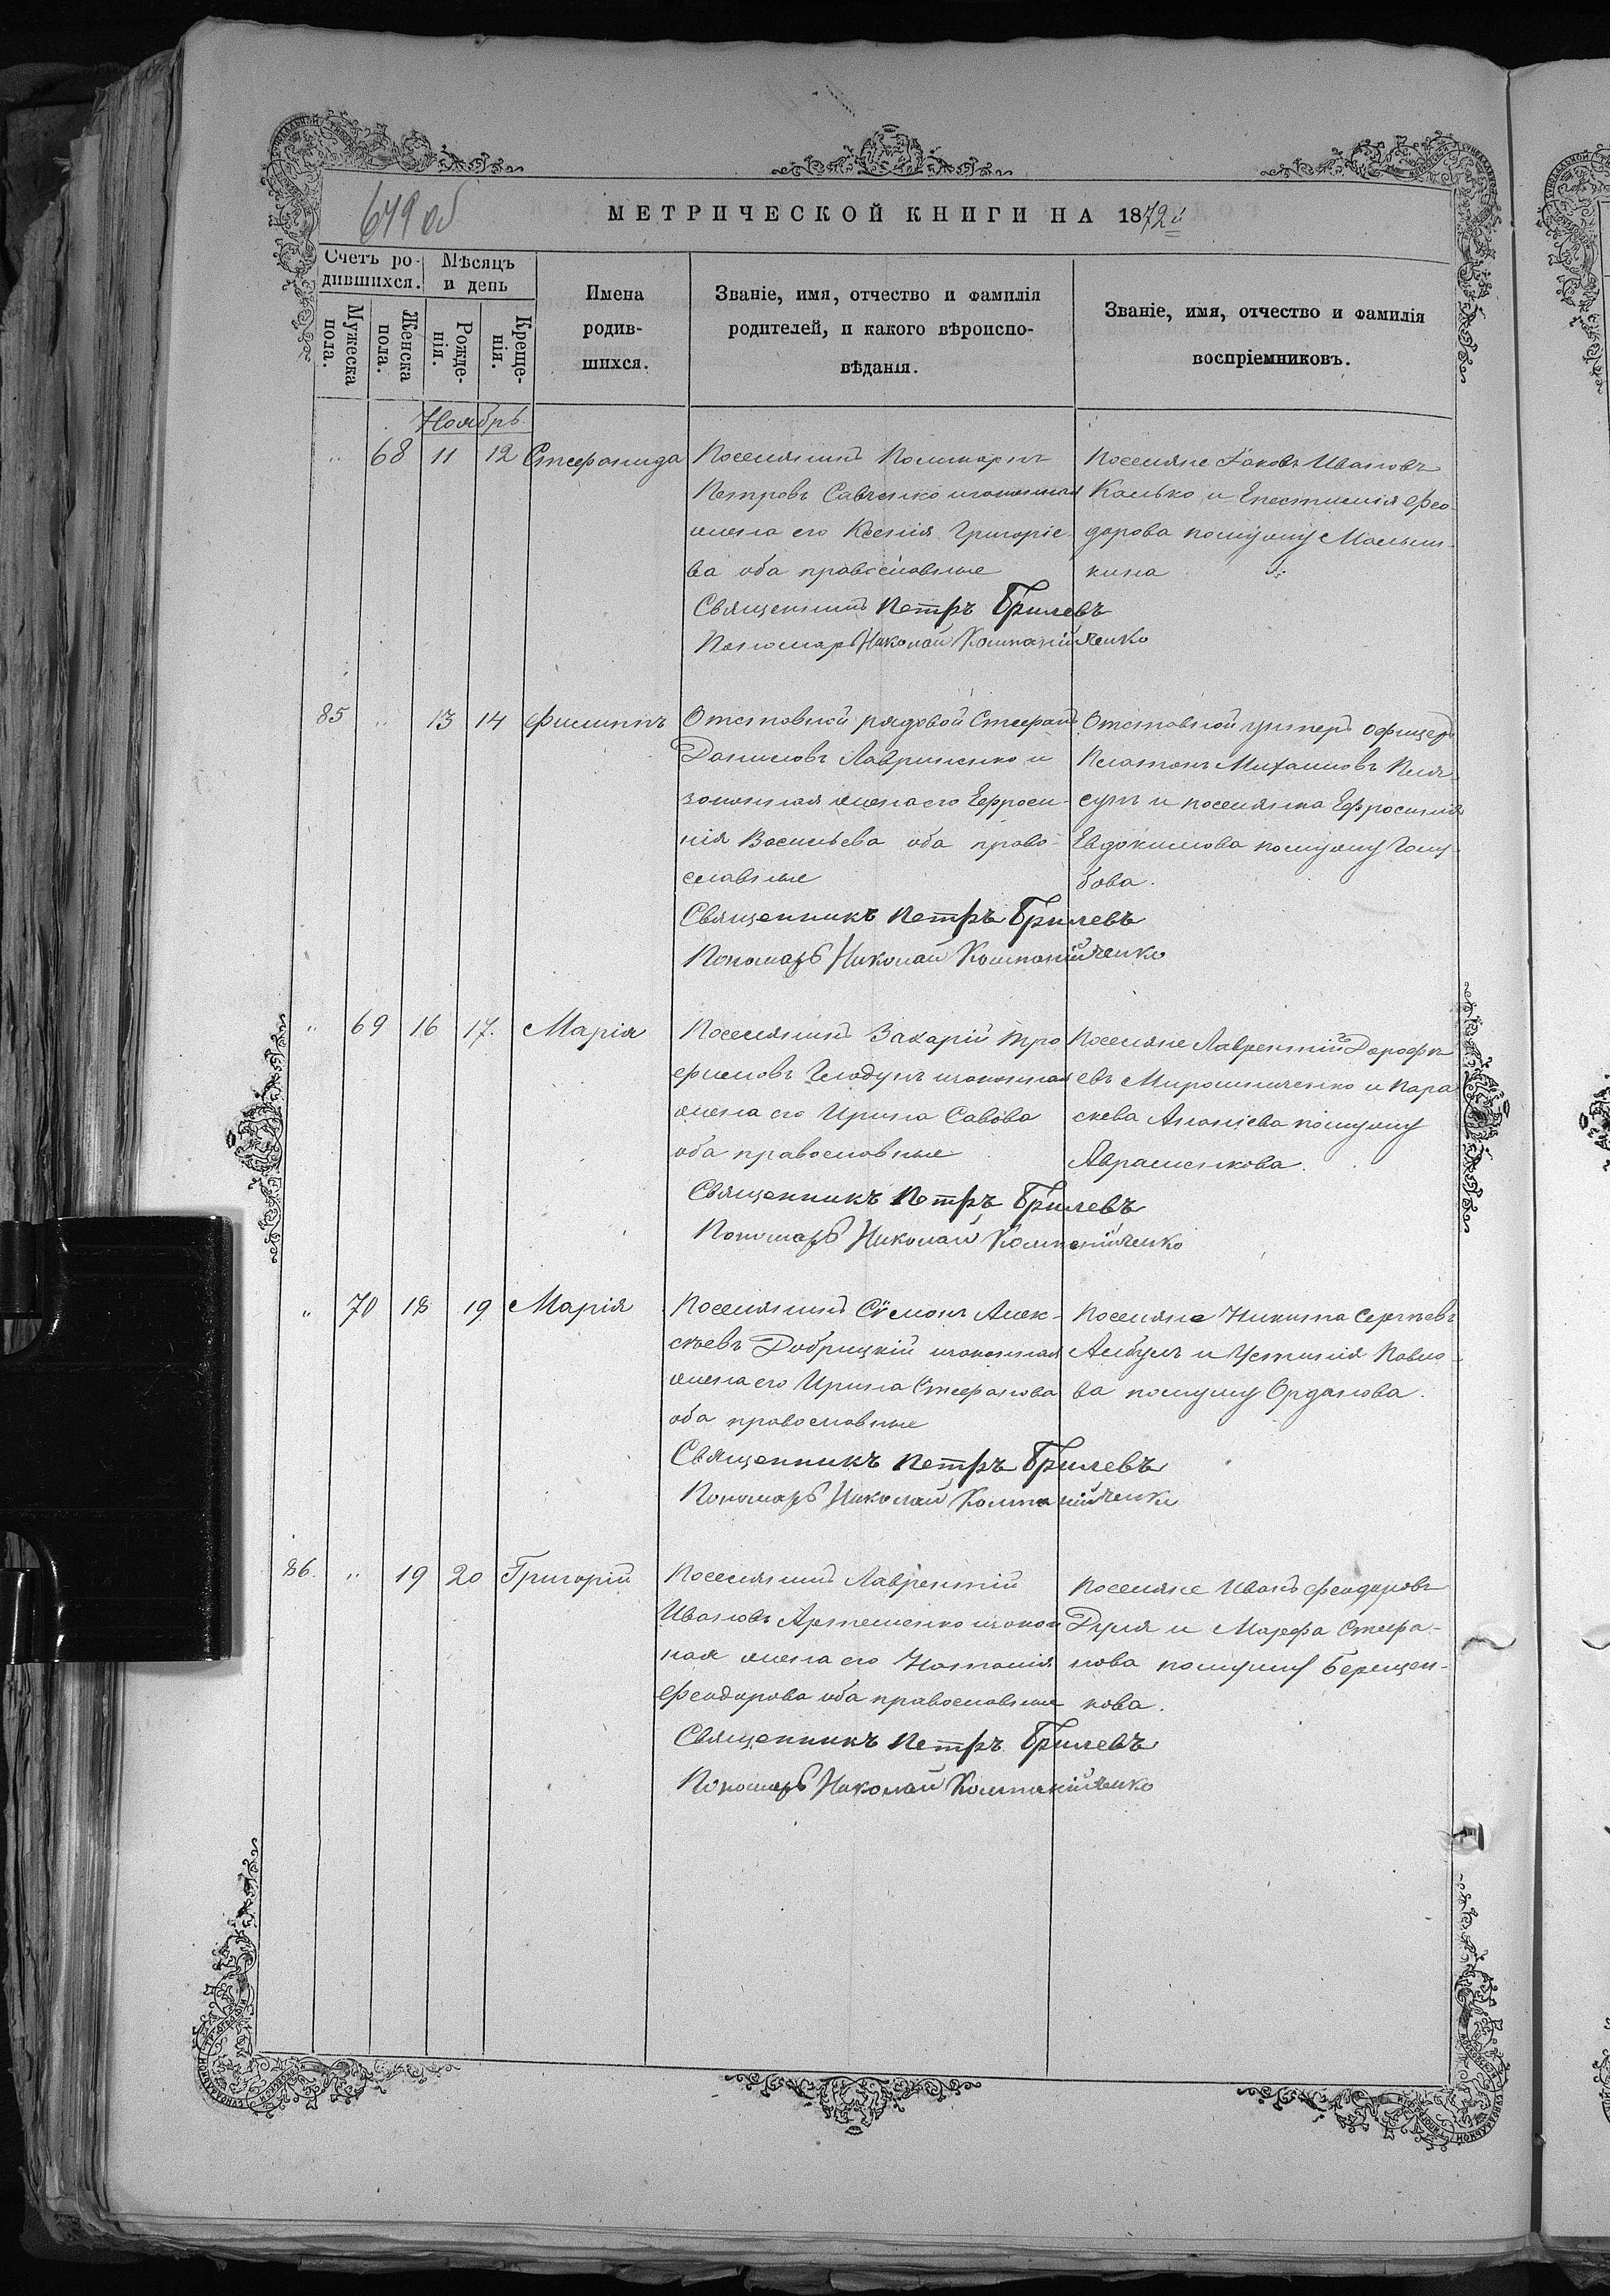 679 об
МЕТРИЧЕСКОЙ КНИГИ НА 1872й
Счетъ ро-
дившихся.
Мѣсяцъ
и день
Мужеска
пола.
Женска
пола.
Рожде-
нія.
Креще-
нія.
Имена
родив-
шихся.
Званіе, имя, отчество и фамилія
родителей, и какого вѣроиспо-
вѣданія.
Званіе, имя, отчество и фамилія
воспріемниковъ.
Ноябрь
" 68 11 12 Стефанида
Поселянинъ Поликарпъ
Петровъ Савченко изаконная
жена его Ксенія Григоріе-
ва оба православные
Священникъ Петръ Брилевъ
Пономарь Николай Компанійченко
Поселяне Іаковъ Ивановъ
Калько и Епистимія Фео-
дорова помужу Малыш-
кина
85 " 13 14 Филиппъ
Отставной рядовой Стефанъ
Даниловъ Лавриненко и
законная жена его Ефроси-
нія Васильева оба право-
славные
Священникъ Петръ Брилевъ
Пономарь Николай Компанійченко
Отставной унтеръ офицеръ
Платонъ Михаиловъ Пиля-
сунъ и поселянка Ефросинія
Евдокимова помужу Голу-
бова.
" 69 16 17. Марія
Поселянинъ Захарій Тро
фимовъ Глодунъ изаконная
жена его Ирина Савова
оба православные
Священникъ Петръ Брилевъ
Пономарь Николай Компанійченко
Поселяне Лаврентій Дорофѣ
евъ Мирошниченко и Пара
скева Ананіева помужу
Авраменкова.
" 70 18 19 Марія
Поселянинъ Сѵмеонъ Алек-
сѣевъ Добрицкій изаконная
жена его Ирина Стефанова
оба православные
Священникъ Петръ Брилевъ
Пономарь Николай Компанійченко
Поселяне Никита Сергѣевъ
Албулъ и Устинія Павло-
ва помужу Орданова.
86. " 19 20 Григорій
Поселянинъ Лаврентій
Ивановъ Артеменко изакон
ная жена его Наталія
Феодорова оба православные
Священникъ Петръ Брилевъ
Пономарь Николай Компанійченко
Поселяне Иванъ Феодоровъ
Дуля и Марфа Стефа-
нова помужу Берещен-
кова.